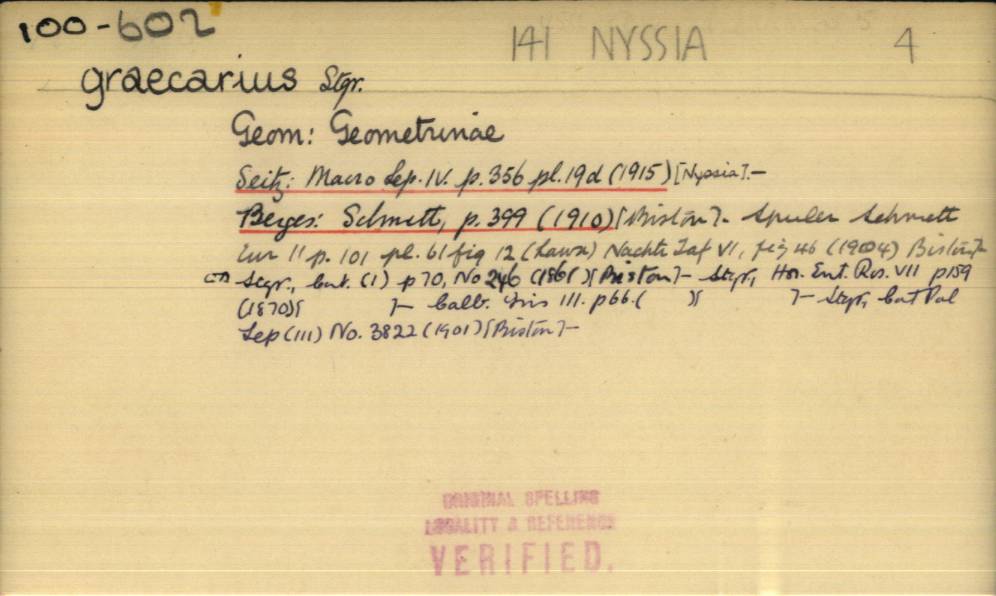 100-602
141 NYSSIA 4
graecarius Stgr.
Geom: Geometrinae
Seitz: Macro Lep. IV. p.356 pl.19d (1915) [Nyssia].-
Berges: Schmett, p.399 (1910) [Biston]- Spuler Schmett
Eur II p. 101 pl. 61 fig 12 (Larva) Nachtr Taf VI, fig 46 (1904) Biston]-
Stgr, Cat. (1) p 70, No 246 (1861) [Biston]- Stgr, Hor. Ent. Ros. VII p159
(1870)[ ]- Calb. Iris III. p66. ( )[ ]- Stgr, Cat Pal
Lep (III) No. 3822 (1901) [Biston]-
ORIGINAL SPELLING
LOCALITY & REFERENCE
VERIFIED.